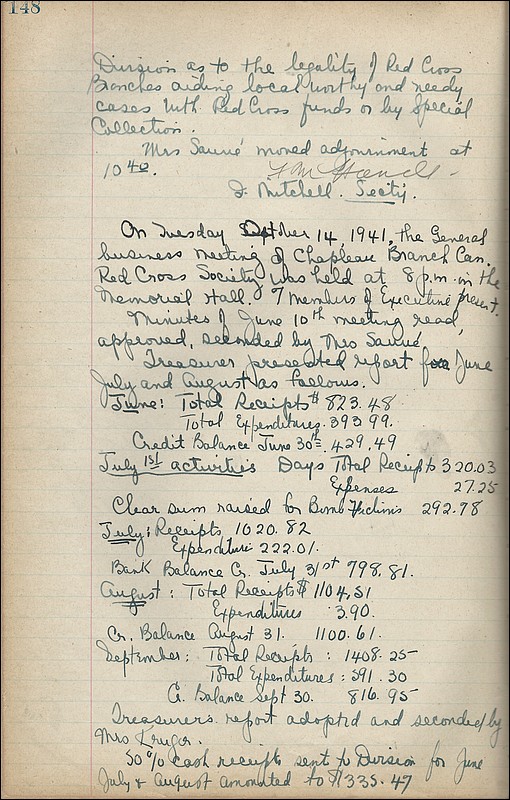 148
Division as to the legality of Red Cross
Branches aiding local worthy and needy
cases with Red Cross funds or by Special
Collection.
Mrs Sauvé moved adjournment at
10 40.
J. Mitchell. Sec'ty.
On Tuesday October 14, 1941, the General
business meeting of Chapleau Branch Can.
Red Cross Society was held at 8 p.m. in the
Memorial Hall. 7 members of Executive present.
Minutes of June 10th meeting read,
approved, seconded by Mrs Sauvé
Treasurer presented report for June
July and August as follows.
June: Total Receipts $ 823.48
Total Expenditures. 393 99.
Credit Balance June 30th. 429.49
July 1st activities Days Total Receipts 320.03
Expenses 27.25
Clear sum raised for Bomb Victims 292.78
July: Receipts 1020.82
Expenditure 222.01.
Bank Balance Cr. July 31st 798.81.
August: Total Receipts $ 1104.51
Expenditures 3.90.
Cr. Balance August 31. 1100.61.
September: Total Receipts: 1408.25
Total Expenditures: 591.30
Cr. Balance Sept 30. 816.95
Treasurers report adopted and seconded by
Mrs Kruger.
50% cash receipts sent to Division for June
July & August amounted to $335.47